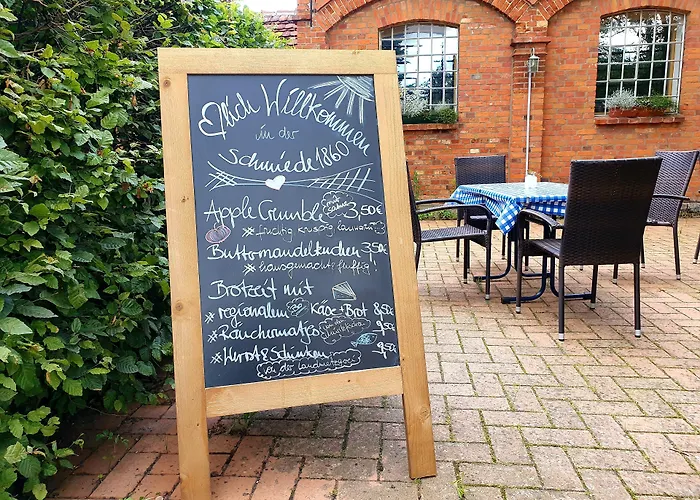 Herzlich Willkommen
in der
Schmiede 1860
Apple Crumble mit Sahne 3,50€
#fruchtig knusprig lauwarm
Buttermandelkuchen 3,50€
#hausgemacht #fluffig!
Brotzeit mit
#regionalem Käse + Brot 8,50
#Räuchermatjes 9,50€
#Wurst & Schinken 9,50
von der Landmetzgerei